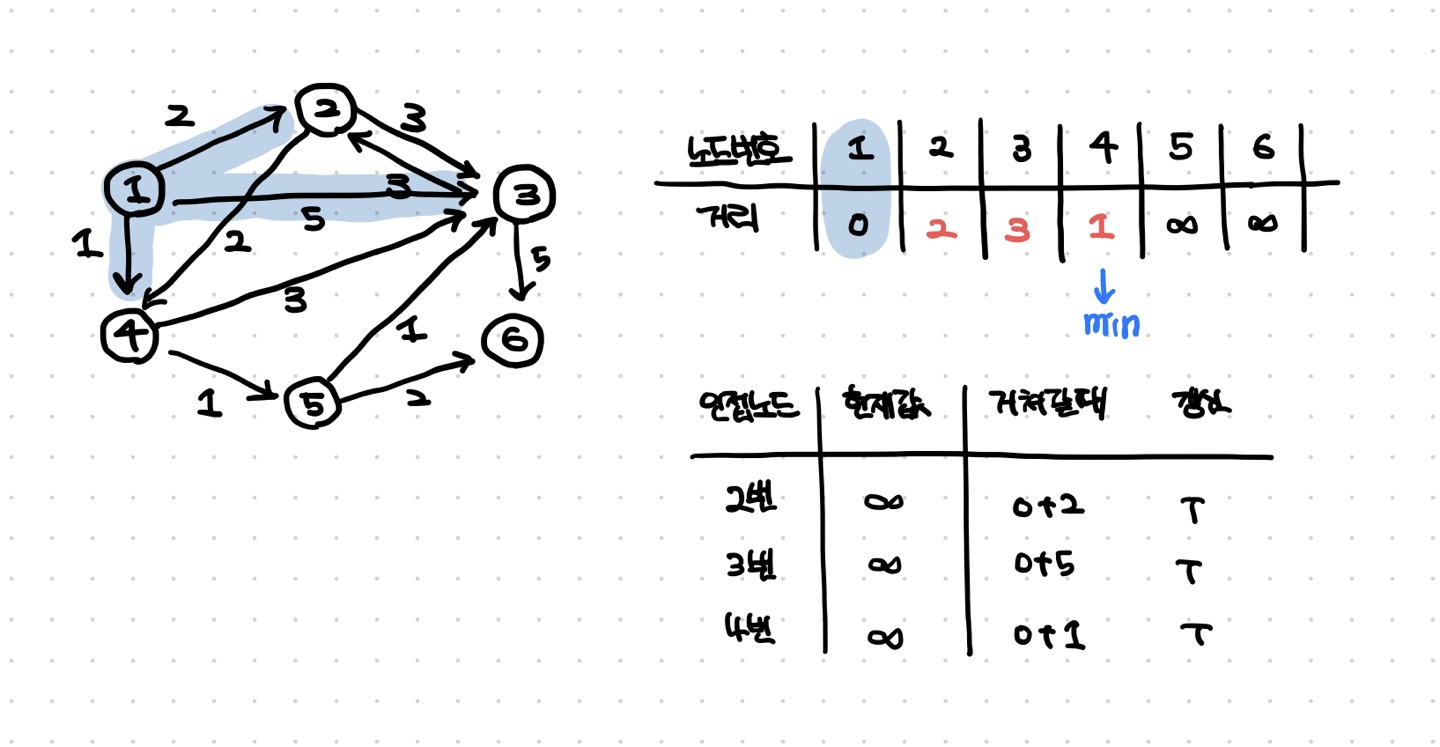 2
2
3
1
3
3
5
1
2
5
3
4
1
6
1
5
2
노드번호 1 2 3 4 5 6
거리 0 2 3 1 ∞ ∞
min
인접노드 현재값 거쳐갈때 갱신
2번 ∞ 0+2 T
3번 ∞ 0+5 T
4번 ∞ 0+1 T